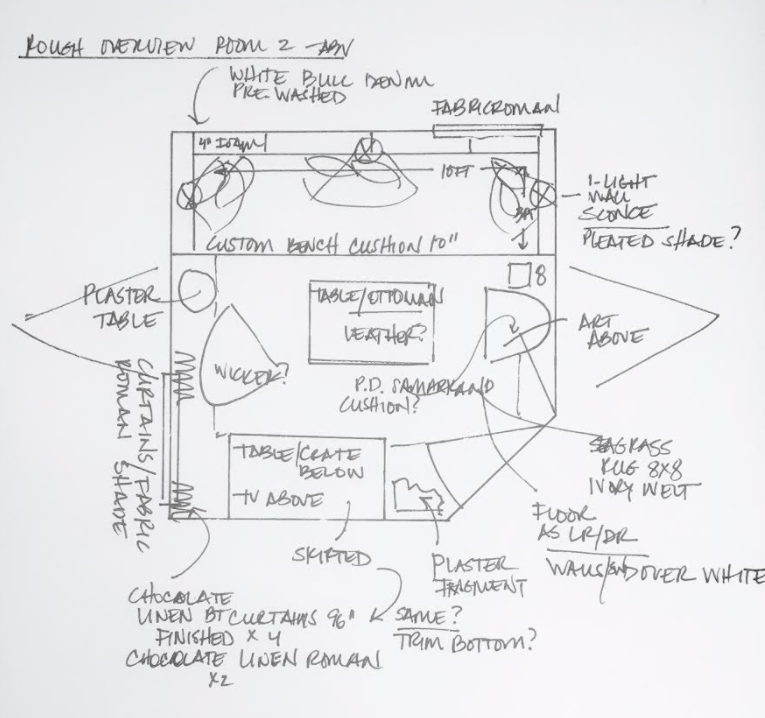 ROUGH OVERVIEW ROOM 2 -ABV
WHITE BULL DENIM
PRE-WASHED
FABRIC ROMAN
4" FOAM
10FT
1-LIGHT
WALL
SCONCE
PLEATED SHADE?
3FT
CUSTOM BENCH CUSHION 10"
8
PLASTER
TABLE
TABLE/OTTOMAN
LEATHER?
ART
ABOVE
WICKER?
P.D. SAMARKAND
CUSHION?
CURTAINS/FABRIC
ROMAN SHADE
TABLE/CRATE
BELOW
TV ABOVE
SEAGRASS
RUG 8X8
IVORY WELT
FLOOR
AS LR/DR
WALLS/ DOVER WHITE
SKIRTED
PLASTER
FRAGMENT
CHOCOLATE
LINEN BT CURTAINS 96"
FINISHED X 4
SAME?
TRIM BOTTOM?
CHOCOLATE LINEN ROMAN
X2